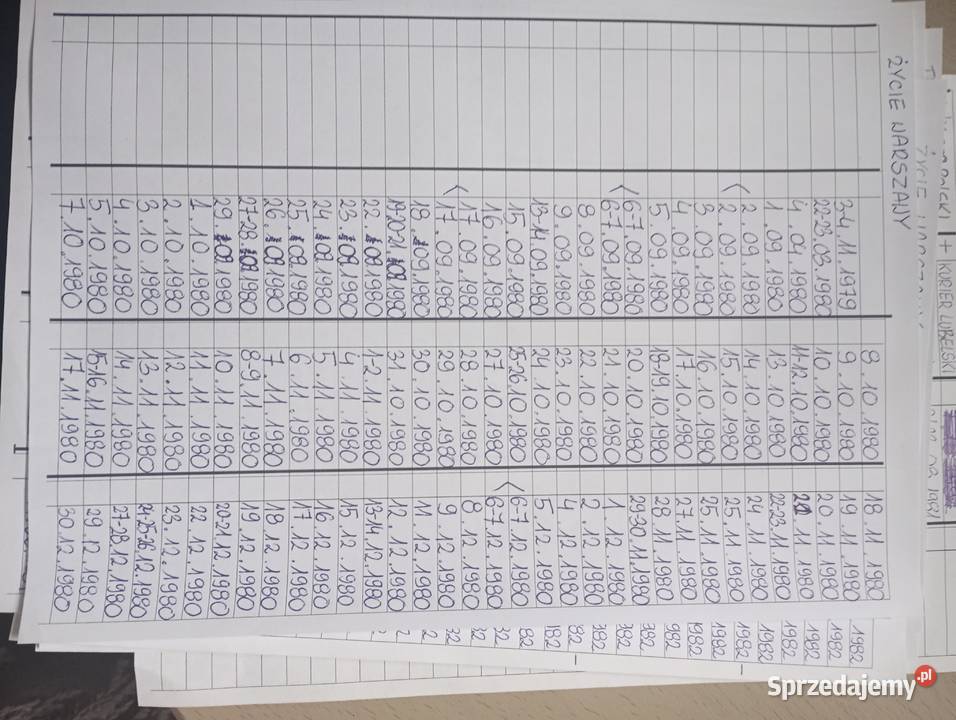 + KURIER LUBELSKI
ŻYCIE WARSZAWY
3-4.11.1979
22-23.03.1980
4.04.1980
1.09.1980
2.09.1980
< 2.09.1980
3.09.1980
4.09.1980
5.09.1980
6-7.09.1980
< 6-7.09.1980
8.09.1980
9.09.1980
13-14.09.1980
15.09.1980
16.09.1980
17.09.1980
< 17.09.1980
18.09.1980
19-20-21.09.1980
22.09.1980
23.09.1980
24.09.1980
25.09.1980
26.09.1980
27-28.09.1980
29.09.1980
1.10.1980
2.10.1980
3.10.1980
4.10.1980
5.10.1980
7.10.1980
8.10.1980
9.10.1980
10.10.1980
11-12.10.1980
13.10.1980
14.10.1980
15.10.1980
16.10.1980
17.10.1980
18-19.10.1980
20.10.1980
21.10.1980
22.10.1980
23.10.1980
24.10.1980
25-26.10.1980
27.10.1980
28.10.1980
29.10.1980
30.10.1980
31.10.1980
1-2.11.1980
4.11.1980
5.11.1980
6.11.1980
7.11.1980
8-9.11.1980
10.11.1980
11.11.1980
12.11.1980
13.11.1980
14.11.1980
15-16.11.1980
17.11.1980
18.11.1980
19.11.1980
20.11.1980
21.11.1980
22-23.11.1980
24.11.1980
25.11.1980
25.11.1980
27.11.1980
28.11.1980
29-30.11.1980
1.12.1980
2.12.1980
4.12.1980
5.12.1980
6-7.12.1980
< 6-7.12.1980
8.12.1980
9.12.1980
11.12.1980
12.12.1980
13-14.12.1980
15.12.1980
16.12.1980
17.12.1980
18.12.1980
19.12.1980
20-21.12.1980
22.12.1980
23.12.1980
24-25-26.12.1980
27-28.12.1980
29.12.1980
30.12.1980
1982
1982
1982
1982
1982
1982
1982
Sprzedajemy.pl